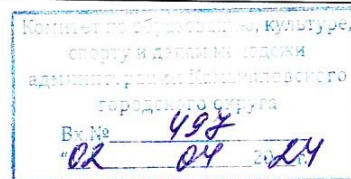 Комитет по образованию, культуре,
спорту и делам молодежи
администрации Камышловского
городского округа
Вх.№ 497
"02 04 2024